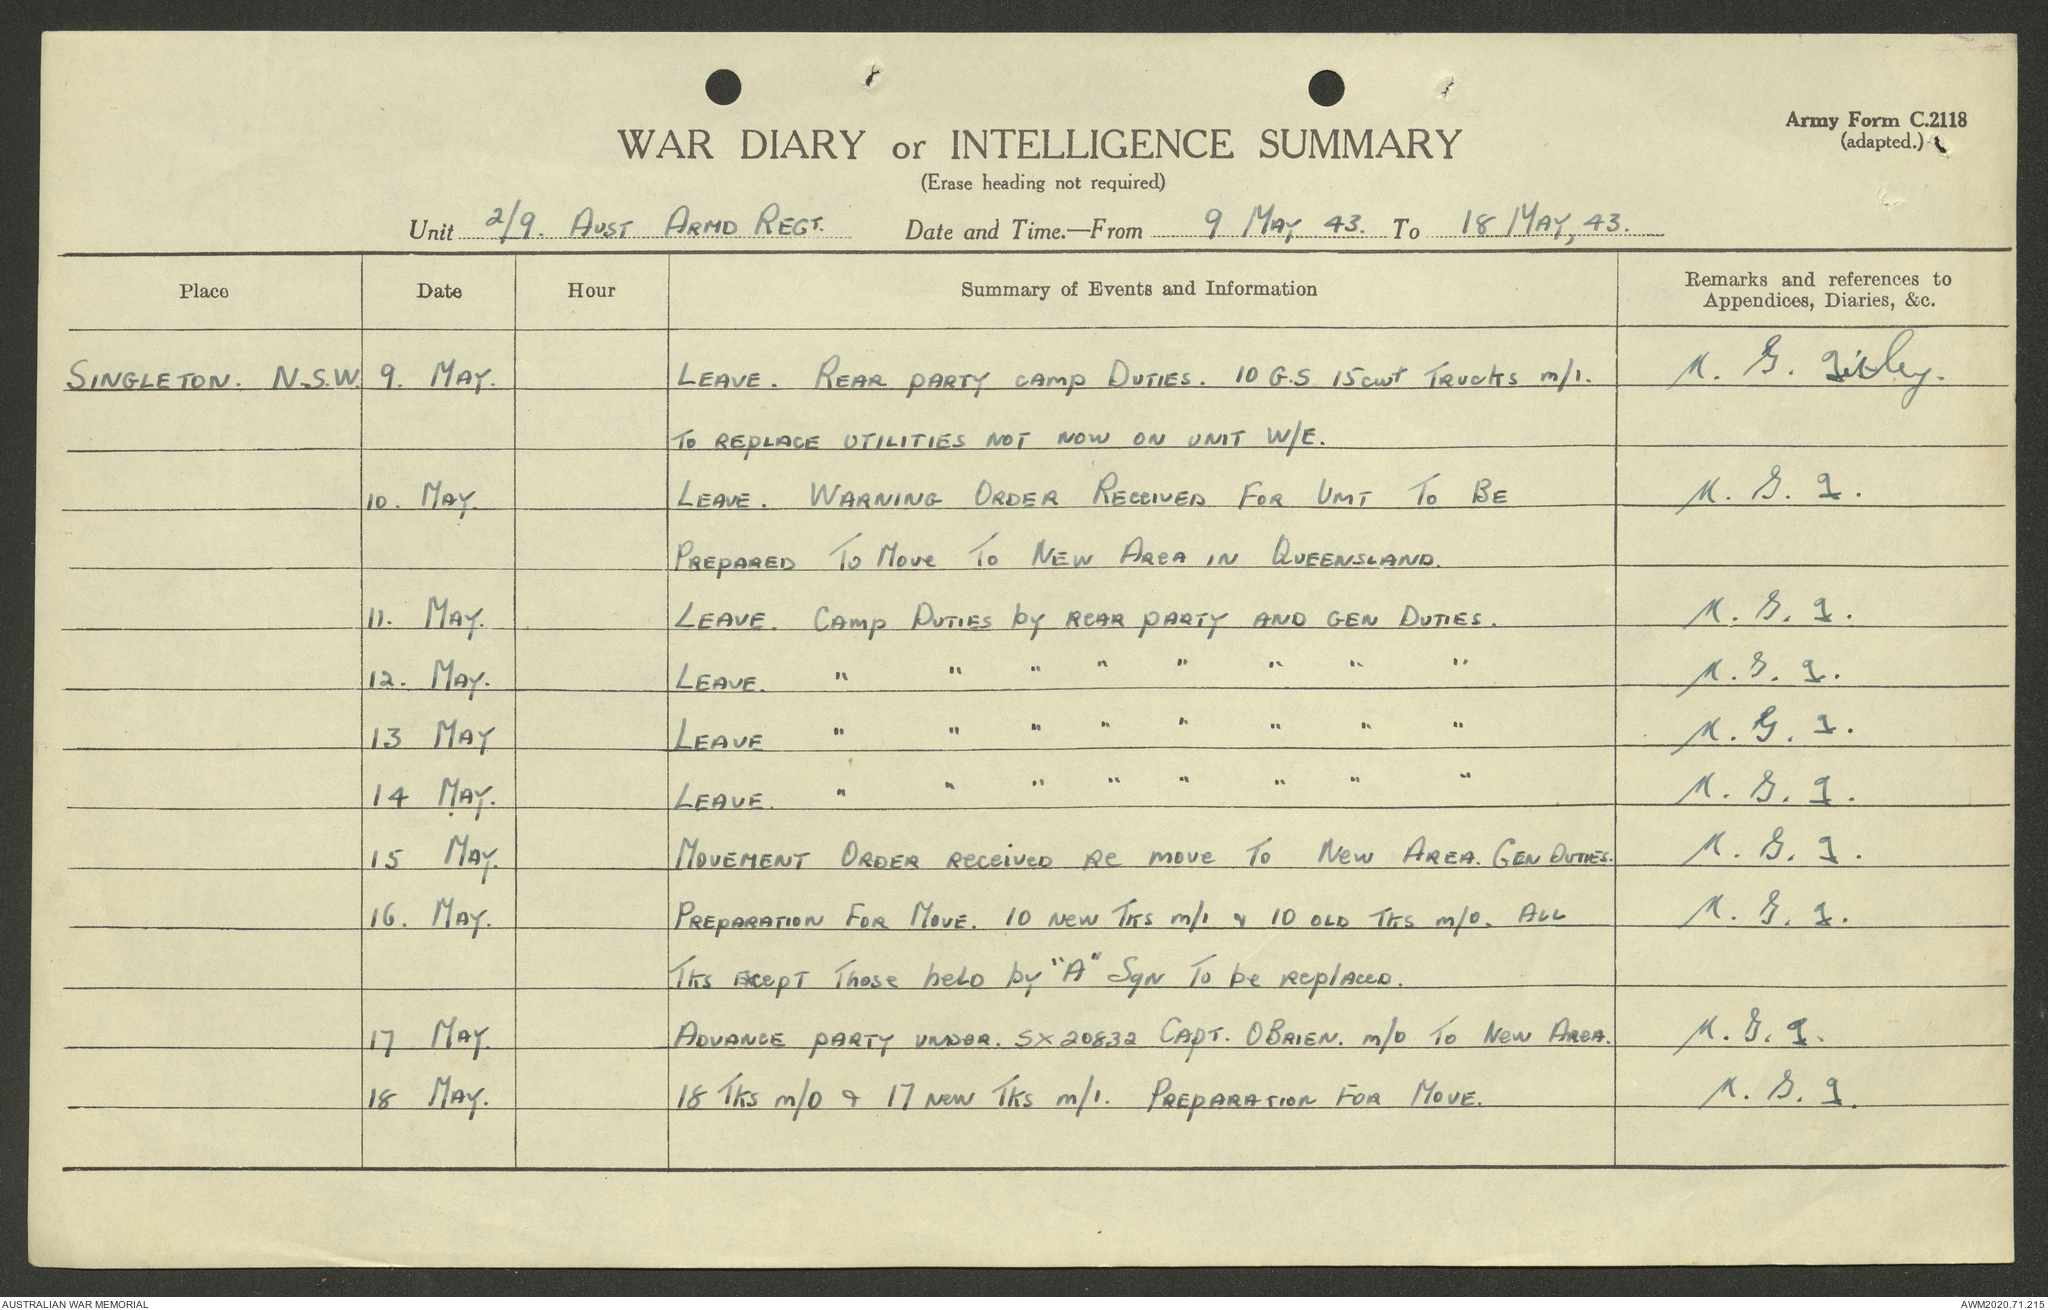 Army Form C.2118
(adapted.)
WAR DIARY or INTELLIGENCE SUMMARY
(Erase heading not required)
Unit 2/9. AUST ARMD REGT. Date and Time.—From 9 MAY 43. To 18 MAY, 43.
Place Date Hour Summary of Events and Information Remarks and references to
Appendices, Diaries, &c.
SINGLETON. N.S.W. 9. MAY. LEAVE. REAR PARTY CAMP DUTIES. 10 G.S 15cwt TRUCKS m/1.
TO REPLACE UTILITIES NOT NOW ON UNIT W/E.
10. MAY. LEAVE. WARNING ORDER RECEIVED FOR UNIT TO BE
PREPARED TO MOVE TO NEW AREA IN QUEENSLAND.
11. MAY. LEAVE. CAMP DUTIES by REAR PARTY AND GEN DUTIES.
12. MAY. LEAVE. " " " " " " " "
13 MAY LEAVE " " " " " " " "
14 MAY. LEAVE. " " " " " " " "
15 MAY. MOVEMENT ORDER RECEIVED RE MOVE TO NEW AREA. GEN DUTIES.
16. MAY. PREPARATION FOR MOVE. 10 NEW TKS m/1 & 10 OLD TKS m/o. ALL
TKS EXCEPT THOSE HELD by "A" SQN TO be REPLACED.
17 MAY. ADVANCE PARTY UNDER. SX20832 CAPT. OBRIEN. m/o TO NEW AREA.
18 MAY. 18 TKS m/o & 17 NEW TKS m/1. PREPARATION FOR MOVE.
AUSTRALIAN WAR MEMORIAL AWM2020.71.215